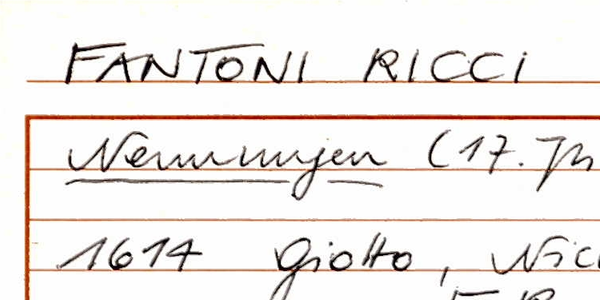 FANTONI RICCI
Nennungen (17. Jh
1614 Giotto, Nic